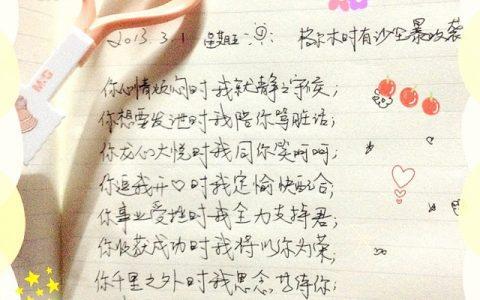 2013.3.1 星期五 格尔木时有沙尘暴攻袭
M&G
你心情烦闷时我就静守候;
你想要发泄时我陪你骂脏话;
你龙心大悦时我同你笑呵呵;
你逗我开♡时我定愉快配合;
你事业受挫时我全力支持君;
你收获成功时我得以你为荣;
你千里之外时我思念等待你;